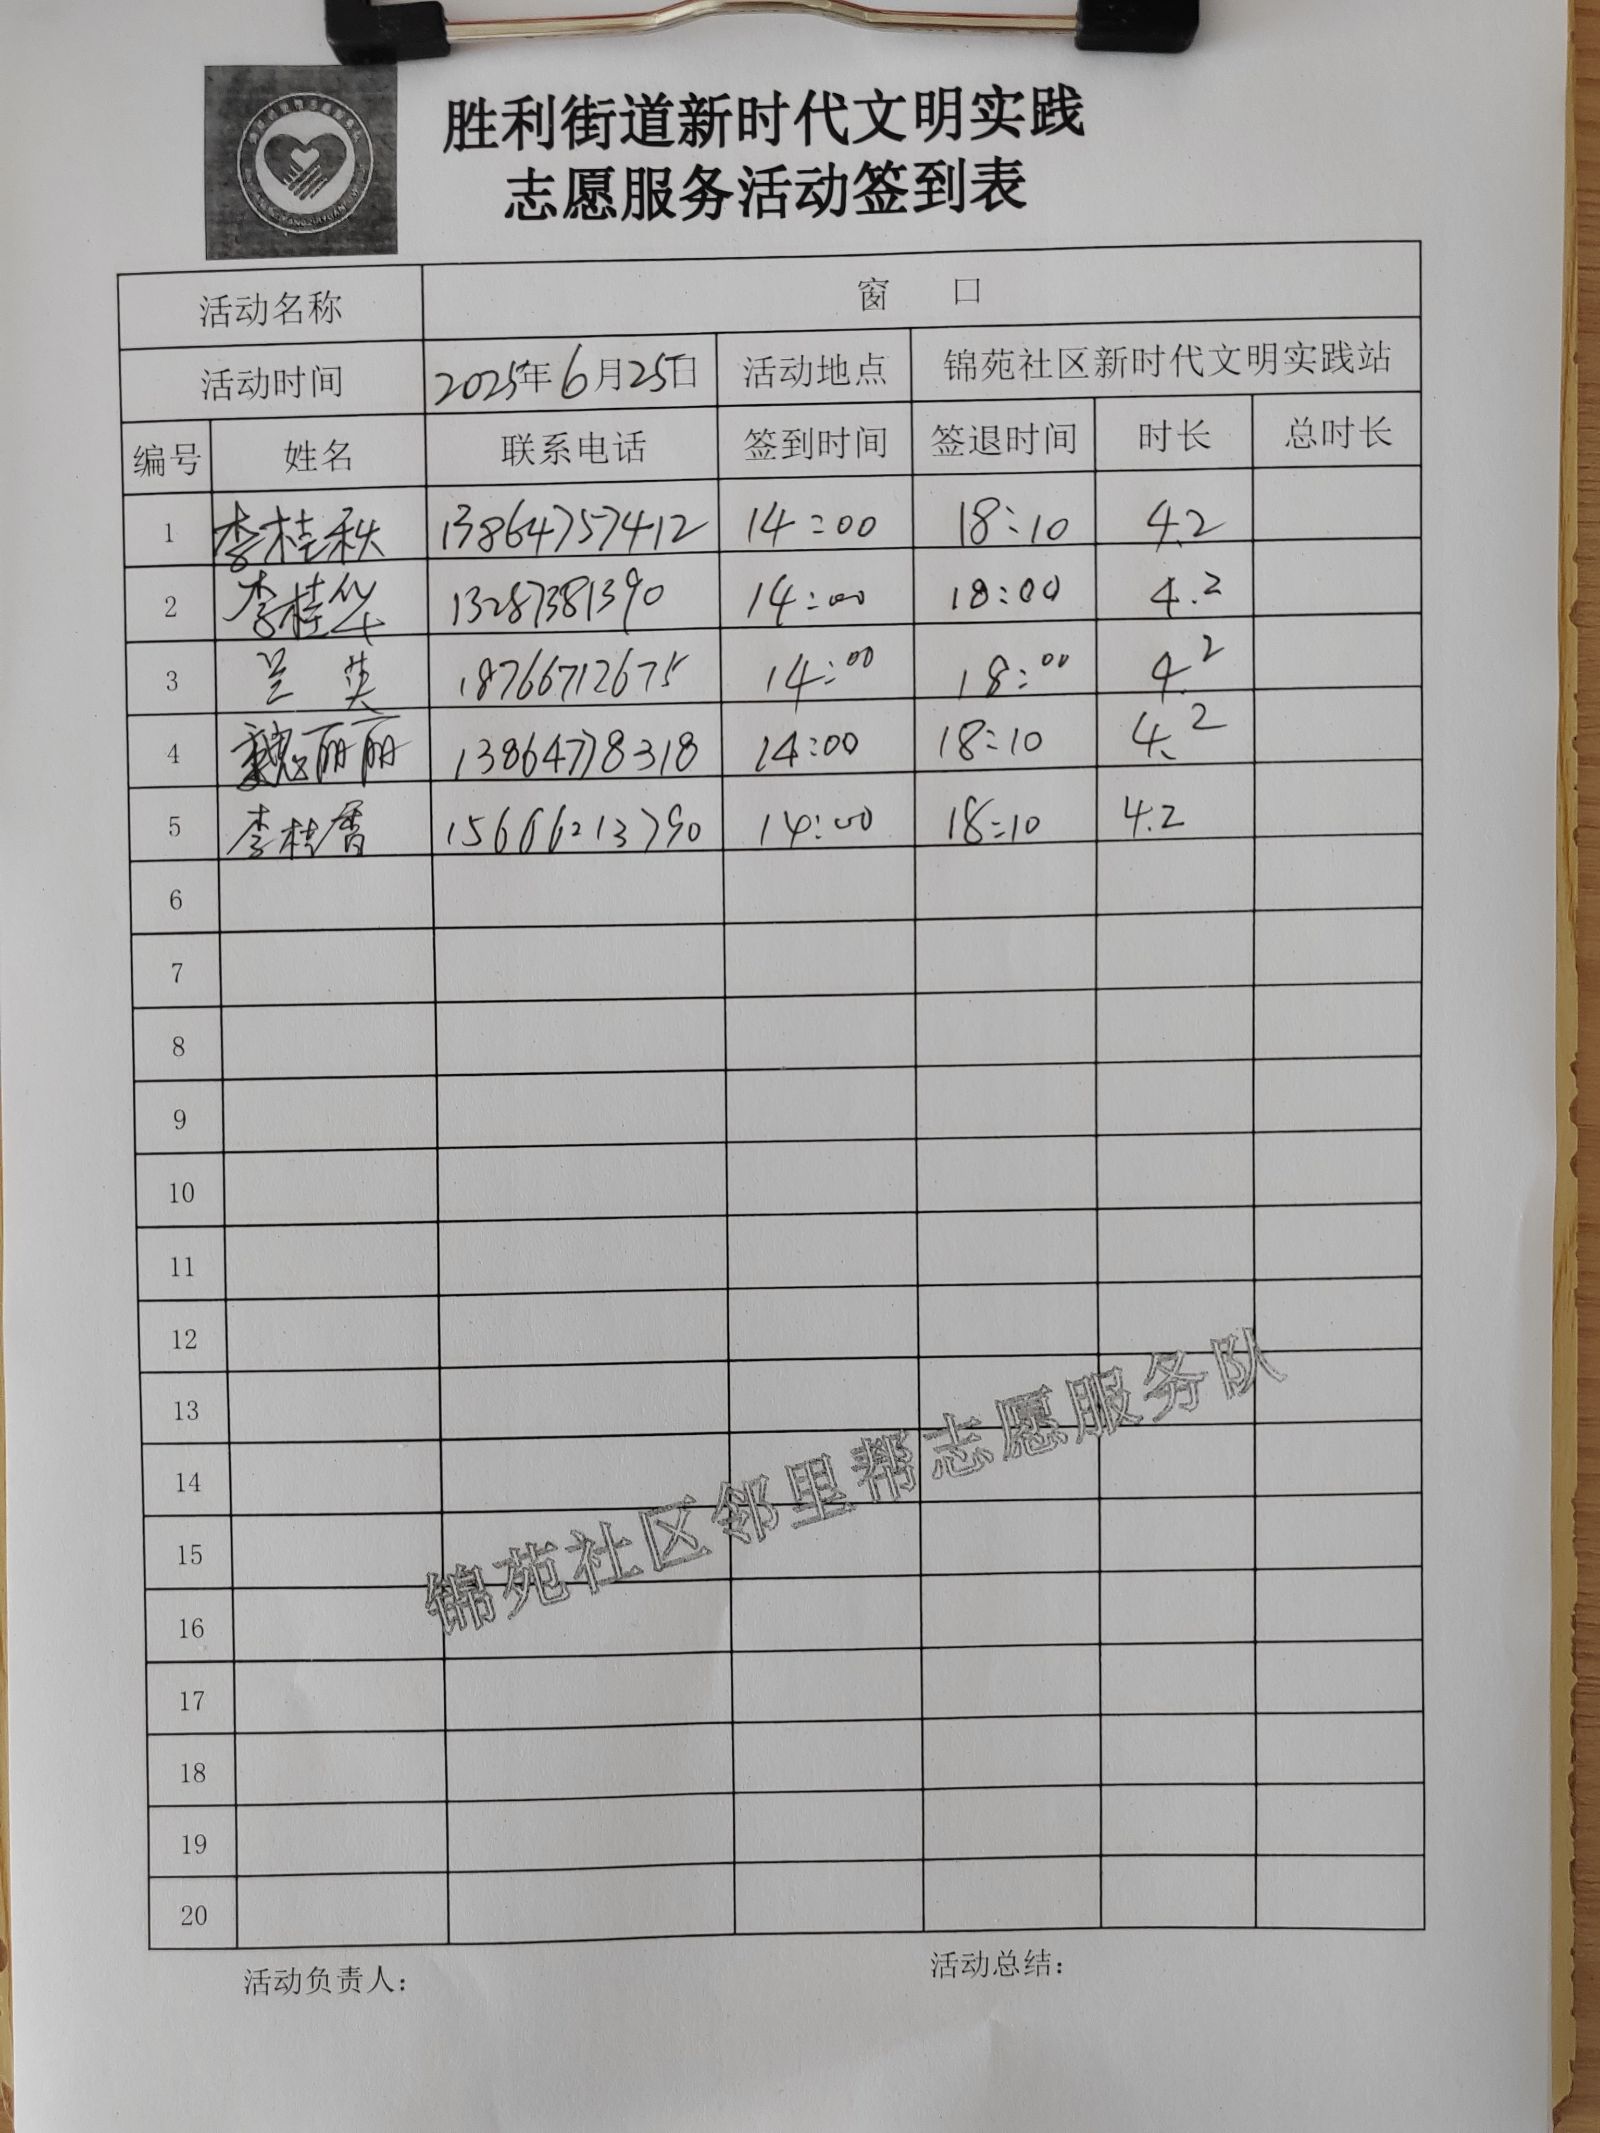 胜利街道新时代文明实践
志愿服务活动签到表
活动名称 窗 口
活动时间 2025年6月25日 活动地点 锦苑社区新时代文明实践站
编号 姓名 联系电话 签到时间 签退时间 时长 总时长
1 李桂秋 13864757412 14:00 18:10 4.2
2 李桂华 13287381390 14:00 18:00 4.2
3 兰英 18766712675 14:00 18:00 4.2
4 魏丽丽 13864778318 14:00 18:10 4.2
5 李桂香 15666213790 14:00 18:10 4.2
6
7
8
9
10
11
12
13
14
15
16
17
18
19
20
锦苑社区邻里帮志愿服务队
活动负责人: 活动总结: